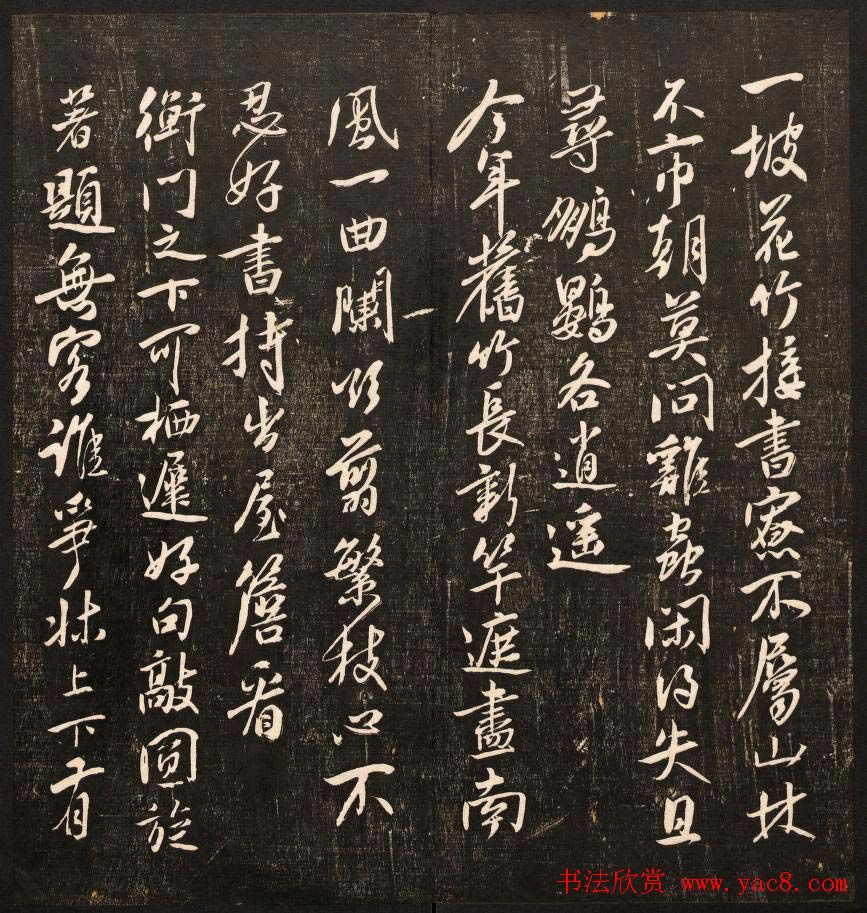 一坡花竹接書寮不屬山林
不市朝莫問雞蟲閑得失且
尋鵬鷃各逍遥
今年舊竹長新竿遮盡南
風一曲闌欲剪繁枝心不
忍好書持出屋簷看
衡門之下可栖遲好句敲圓旋
著題無客誰爭牀上下有
书法欣赏 www.yac8.com